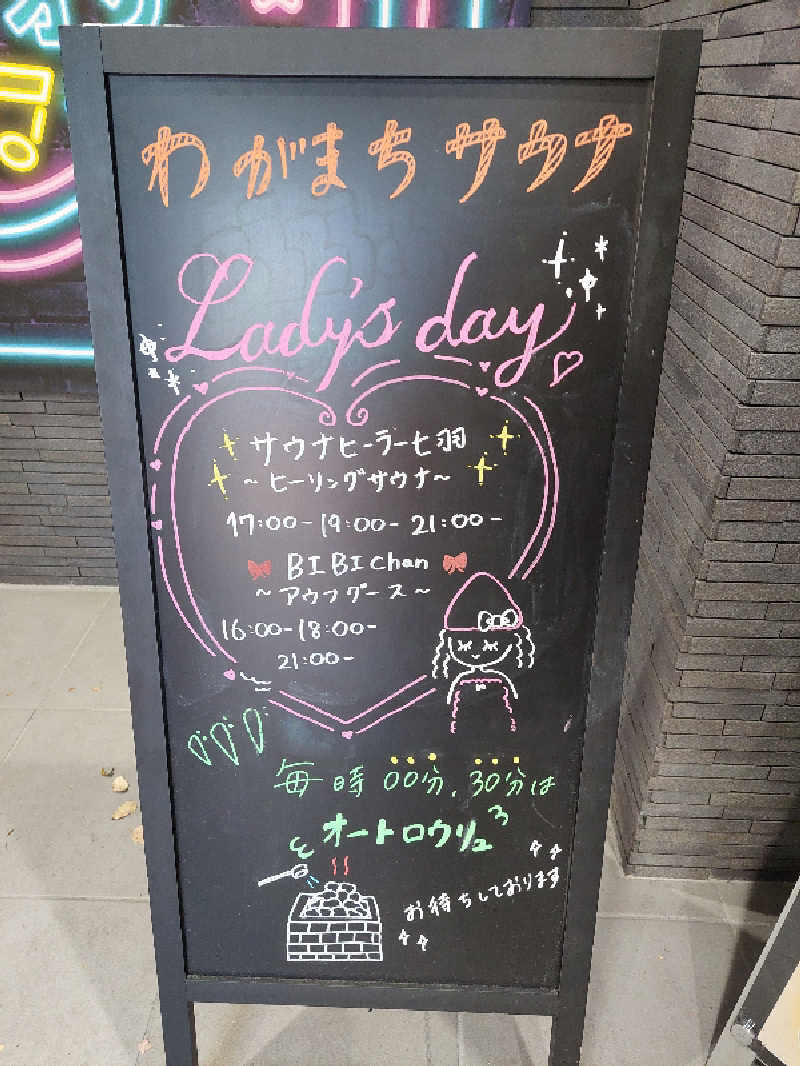 わがまちサウナ
Lady's day
サウナヒーラー七羽
～ヒーリングサウナ～
17:00- 19:00- 21:00-
BIBI chan
～アウフグース～
16:00- 18:00-
21:00-
毎時 00分, 30分は
オートロウリュ
お待ちしております